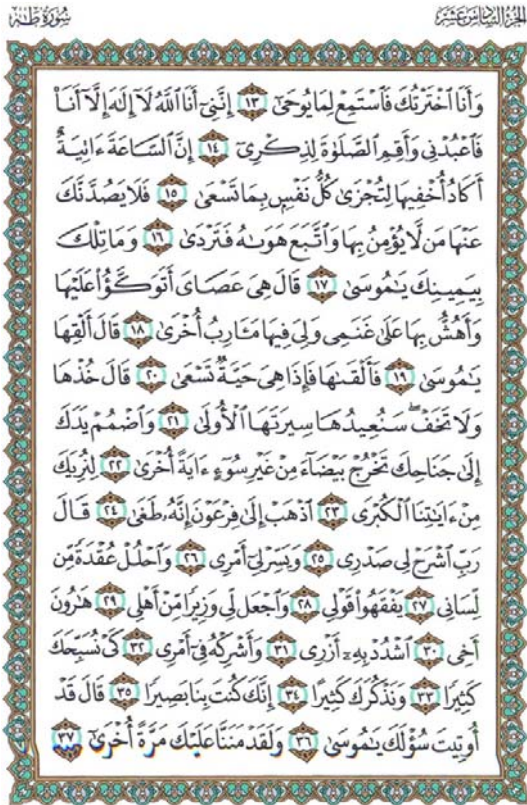 سُورَةُ طٰهٰ الجُزْءُ السَّادِسَ عَشَرَ
وَأَنَا ٱخْتَرْتُكَ فَٱسْتَمِعْ لِمَا يُوحَىٰٓ ١٣ إِنَّنِىٓ أَنَا ٱللَّهُ لَآ إِلَٰهَ إِلَّآ أَنَا۠
فَٱعْبُدْنِى وَأَقِمِ ٱلصَّلَوٰةَ لِذِكْرِىٓ ١٤ إِنَّ ٱلسَّاعَةَ ءَاتِيَةٌ
أَكَادُ أُخْفِيهَا لِتُجْزَىٰ كُلُّ نَفْسٍۭ بِمَا تَسْعَىٰ ١٥ فَلَا يَصُدَّنَّكَ
عَنْهَا مَن لَّا يُؤْمِنُ بِهَا وَٱتَّبَعَ هَوَىٰهُ فَتَرْدَىٰ ١٦ وَمَا تِلْكَ
بِيَمِينِكَ يَٰمُوسَىٰ ١٧ قَالَ هِىَ عَصَاىَ أَتَوَكَّؤُا۟ عَلَيْهَا
وَأَهُشُّ بِهَا عَلَىٰ غَنَمِى وَلِىَ فِيهَا مَـَٔارِبُ أُخْرَىٰ ١٨ قَالَ أَلْقِهَا
يَٰمُوسَىٰ ١٩ فَأَلْقَىٰهَا فَإِذَا هِىَ حَيَّةٌ تَسْعَىٰ ٢٠ قَالَ خُذْهَا
وَلَا تَخَفْ ۖ سَنُعِيدُهَا سِيرَتَهَا ٱلْأُولَىٰ ٢١ وَٱضْمُمْ يَدَكَ
إِلَىٰ جَنَاحِكَ تَخْرُجْ بَيْضَآءَ مِنْ غَيْرِ سُوٓءٍ ءَايَةً أُخْرَىٰ ٢٢ لِنُرِيَكَ
مِنْ ءَايَٰتِنَا ٱلْكُبْرَى ٢٣ ٱذْهَبْ إِلَىٰ فِرْعَوْنَ إِنَّهُۥ طَغَىٰ ٢٤ قَالَ
رَبِّ ٱشْرَحْ لِى صَدْرِى ٢٥ وَيَسِّرْ لِىٓ أَمْرِى ٢٦ وَٱحْلُلْ عُقْدَةً مِّن
لِّسَانِى ٢٧ يَفْقَهُوا۟ قَوْلِى ٢٨ وَٱجْعَل لِّى وَزِيرًا مِّنْ أَهْلِى ٢٩ هَٰرُونَ
أَخِى ٣٠ ٱشْدُدْ بِهِۦٓ أَزْرِى ٣١ وَأَشْرِكْهُ فِىٓ أَمْرِى ٣٢ كَىْ نُسَبِّحَكَ
كَثِيرًا ٣٣ وَنَذْكُرَكَ كَثِيرًا ٣٤ إِنَّكَ كُنتَ بِنَا بَصِيرًا ٣٥ قَالَ قَدْ
أُوتِيتَ سُؤْلَكَ يَٰمُوسَىٰ ٣٦ وَلَقَدْ مَنَنَّا عَلَيْكَ مَرَّةً أُخْرَىٰٓ ٣٧